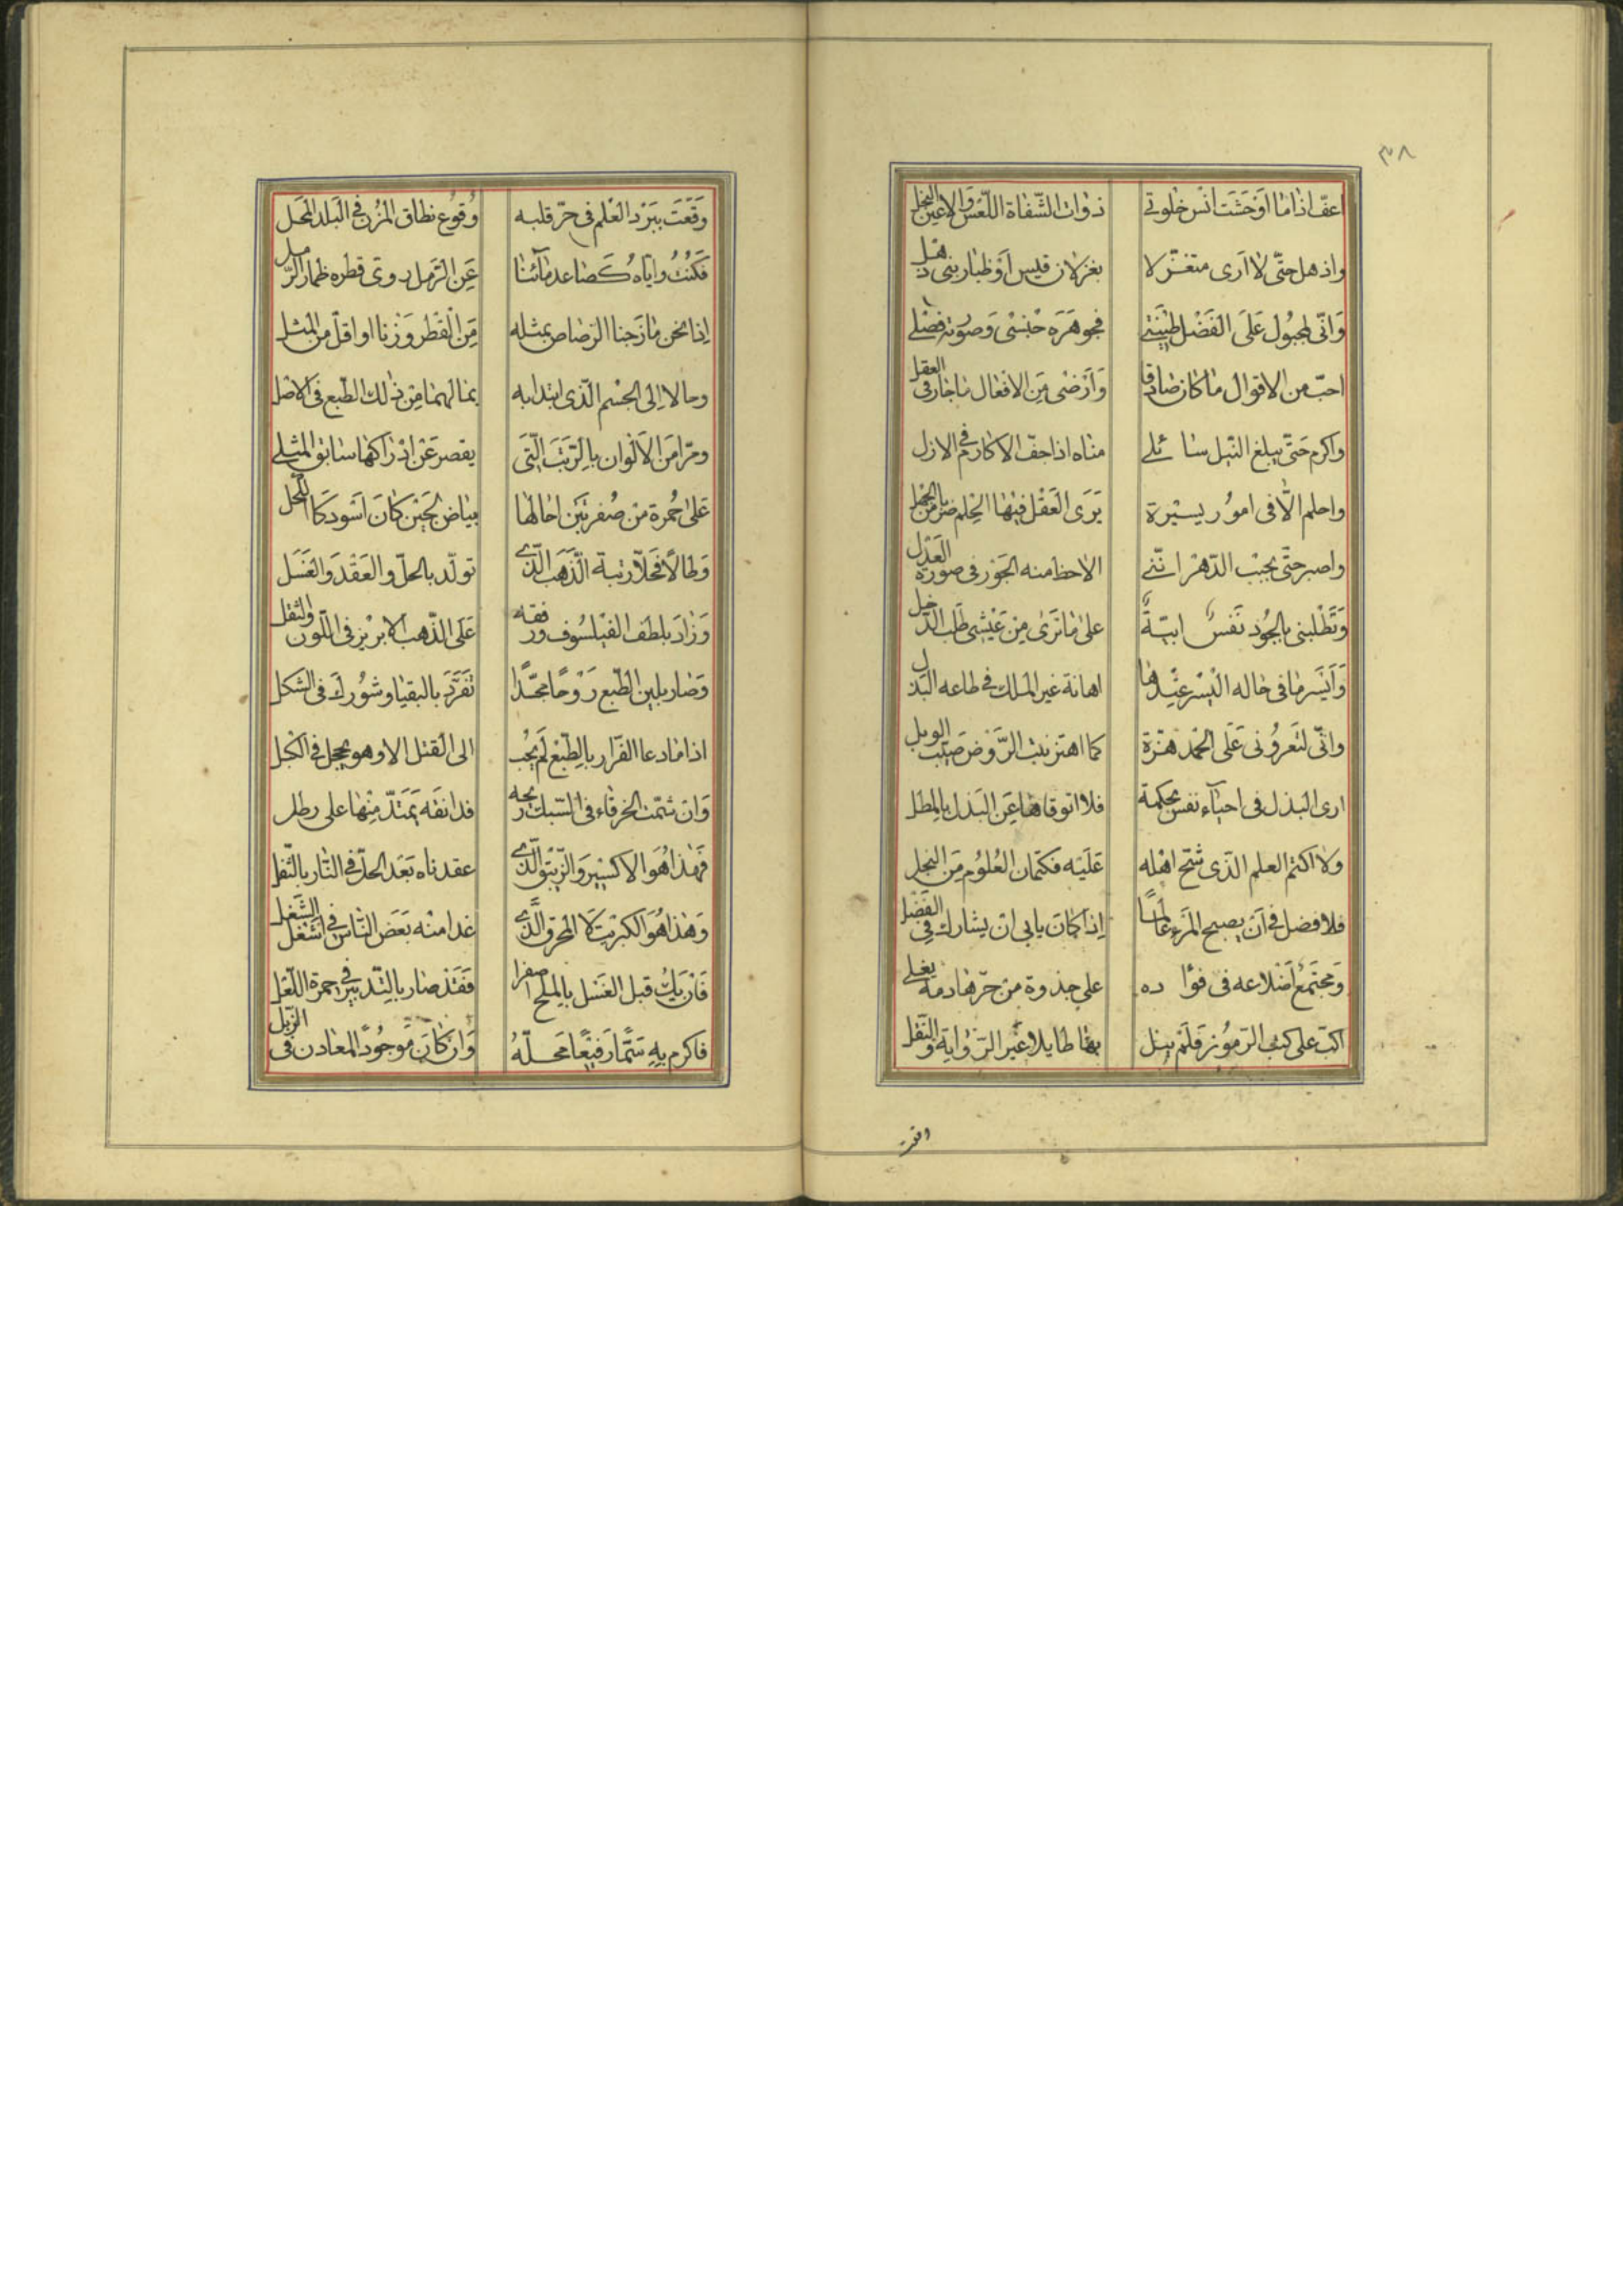 ٣٨
اعف اذا ما اوحشت انس خلوتي ذوات الشفاة اللعس والاعين النجل
واذهل حتى لا ارى متغزلا بغزلان قيس او ظبا بني ذهل
وانى لمجبول على الفضل طينتي فجوهره جنسى وصورته فصلي
احب من الاقوال ما كان صادقا وارضى من الافعال ما جاز في العقل
واكرم حتى يبلغ النيل سائلي مناه اذا جف الاكارم في الازل
واحلم الا في امور يسيرة يرى العقل فيها الحلم ضرب من الجهل
واصبر حتى يحبب الدهر اننى الاحظ منه الجور في صورة العدل
وتظلبنى بالجود نفس ابية على ما ترى من عيشى طلب الذحل
وايسر ما في حاله اليسر عندها اهانة غير الملك في طاعه البذل
وانى لتعرونى على الحمد هزة كما اهتز نبت الروض صيب الوبل
ارى البذل فى احياء نفس بحكمة فلا اتوقاها عن البذل بالمطل
ولا اكتم العلم الذى شح اهله عليه فكتمان العلوم من البخل
فلا فضل في ان يصبح المرء عالما اذا كان يابى ان يشارك في الفضل
ومجتمع اضلاعه فى فؤا ده على جذوة من حرها دمه يغلي
اكب على كتب الرموز فلم ينل بها طايلا غير الرواية والنقل
وقعت ببرد العلم فى حر قلبه وقوع نطاق المزن في البلد المحل
فكنت واياه كصاعد مائنا عن الرمل روى قطره ظمأ الرمل
اذا نحن مازجنا الرصاص بمثله من القطر وزنا او اقل من المثل
وحالا الى الجسم الذى ابتدا به بما لهما من ذلك الطبع في الاصل
ومرا من الالوان بالرتب التى يقصر عن ادراكها سابق المثلى
على حمرة من صفرتين احالها بياض لجين كان اسود كالكحل
وطالا فحلا رتبة الذهب الذي تولد بالحل والعقد والغسل
وزاد بلطف الفيلسوف ورفقه على الذهب الابريز في اللون والثقل
وصار بلين الطبع روحا مجسدا تفرد بالبقيا وشورك فى الشكل
اذا ما دعا الفرار بالطبع لم يجب الى القتل الا وهو يحجل في الكبل
وان شمت الخرقاء في السبك ريحه فدانقه يمتد منها على رطل
فهذا هو الاكسير والزيبق الذي عقدناه بعد الحل في النار بالثفل
وهذا هو الكبريت لا المحرق الذي غدا منه بعض الناس في اشغل الشغل
فان يك قبل الغسل بالملح اصفرا فقد صار بالتدبير في حمرة اللعل
فاكرم به سما رفيعا محله وان كان موجود المعادن في الزبل